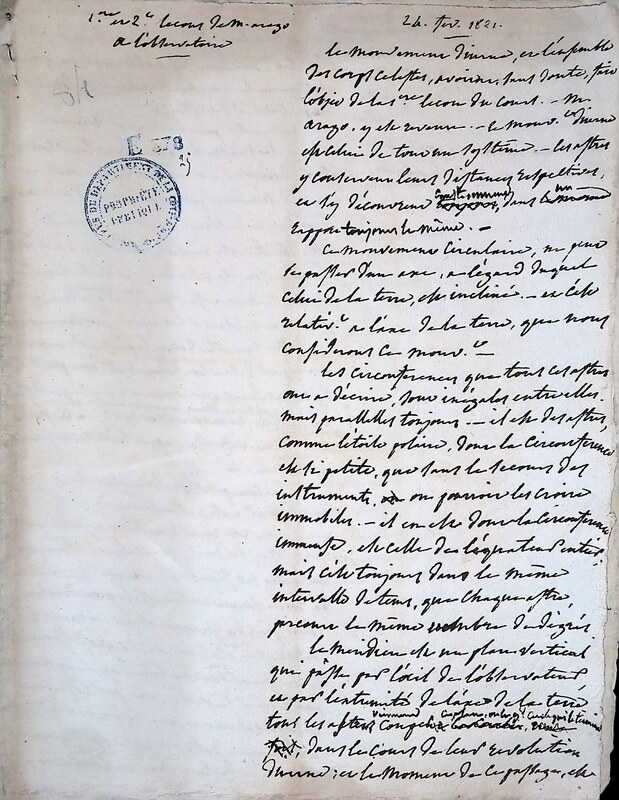 1re et 2e leçons de M. arago
a l'observatoire
24. fev. 1821.
E 378
PROPRIÉTÉ
PUBLIQUE
le mouvement diurne, et l'ensemble
des corps celestes, avoient, sans doute, fait
l'objet de la 1re leçon du cours. - M.
arago y est revenu. - le mouv.t diurne
est celui de tout un systême. - les astres
y conservent leurs distances respectives,
et s'y découvrent constamment, dans un
rapport toujours le même. -
Ce mouvement circulaire, ne peut
se passer d'un axe, a l'égard duquel
celui de la terre, est incliné. - et c'est
relativt. a l'axe de la terre, que nous
considérons ce mouv.t -
les circonferences que tous ces astres
ont a décrire, sont inégales entre elles.
mais paralleles toujours. - il est des astres,
comme l'étoile polaire, dont la circonference
est si petite, que sans le secours des
instruments, on pourroit les croire
immobiles. - il en est dont la circonference
immense, est celle de l'équateur entier.
mais c'est toujours dans le même
intervalle de tems, que chaque astre,
parcourt le même nombre de dégrés
le méridien est un plan vertical
qui passe par l'oeil de l'observateur,
et par l'extrémité de l'axe de la terre
tous les astres viennent couper
dans le cours de leur revolution
diurne; et le moment de ce passage, est